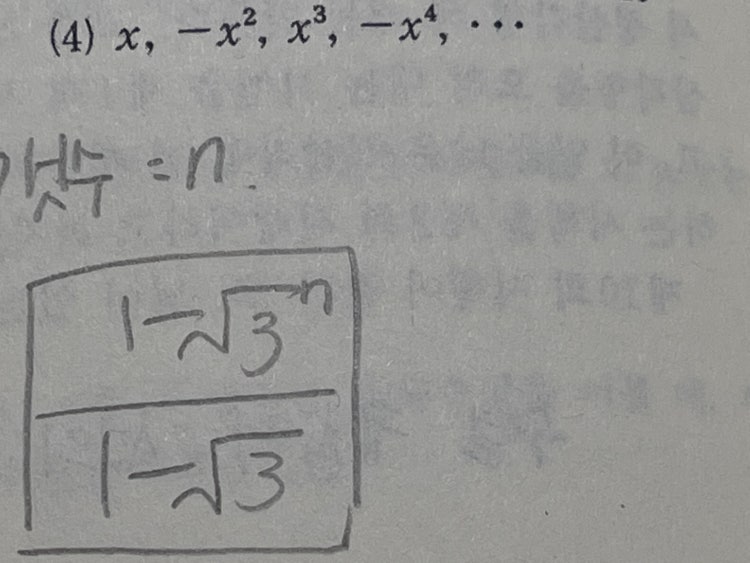 (4) x, −x², x³, −x⁴, ⋯
갯수 = n.
1−√3ⁿ
1−√3